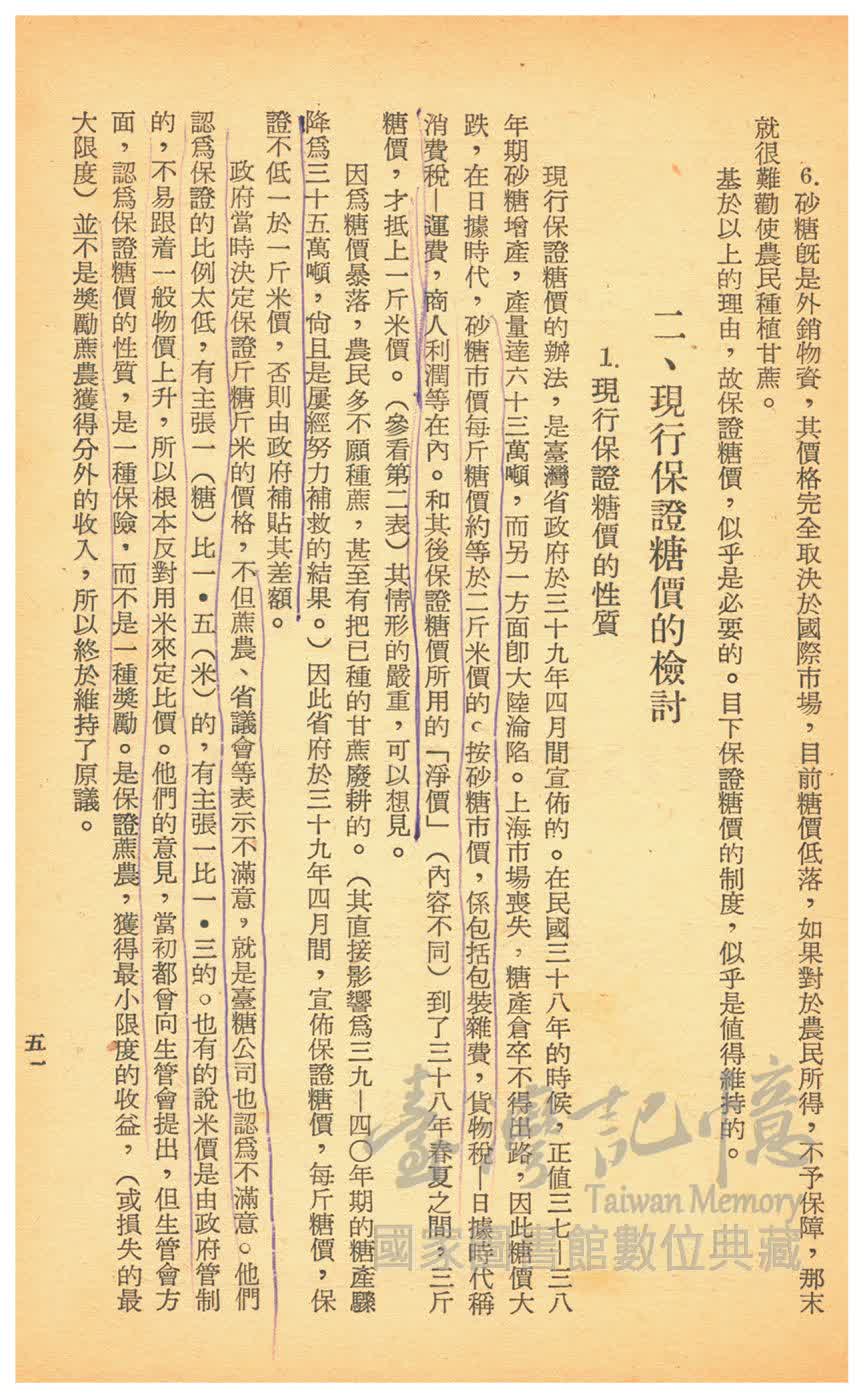 6.砂糖旣是外銷物資，其價格完全取決於國際市場，目前糖價低落，如果對於農民所得，不予保障，那末
就很難勸使農民種植甘蔗。
基於以上的理由，故保證糖價，似乎是必要的。目下保證糖價的制度，似乎是值得維持的。
二、現行保證糖價的檢討
1.現行保證糖價的性質
現行保證糖價的辦法，是臺灣省政府於三十九年四月間宣佈的。在民國三十八年的時候，正值三七—三八
年期砂糖增產，產量達六十三萬噸，而另一方面卽大陸淪陷。上海市場喪失，糖產倉卒不得出路，因此糖價大
跌，在日據時代，砂糖市價每斤糖價約等於二斤米價的。按砂糖市價，係包括包裝雜費，貨物稅—日據時代稱
消費稅—運費，商人利潤等在內。和其後保證糖價所用的「淨價」（內容不同）到了三十八年春夏之間，三斤
糖價，才抵上一斤米價。（參看第二表）其情形的嚴重，可以想見。
因爲糖價暴落，農民多不願種蔗，甚至有把已種的甘蔗廢耕的。（其直接影響爲三九—四〇年期的糖產驟
降爲三十五萬噸，尙且是屢經努力補救的結果。）因此省府於三十九年四月間，宣佈保證糖價，每斤糖價，保
證不低一於一斤米價，否則由政府補貼其差額。
政府當時決定保證斤糖斤米的價格，不但蔗農、省議會等表示不滿意，就是臺糖公司也認爲不滿意。他們
認爲保證的比例太低，有主張一（糖）比一•五（米）的，有主張一比一•三的。也有的說米價是由政府管制
的，不易跟着一般物價上升，所以根本反對用米來定比價。他們的意見，當初都曾向生管會提出，但生管會方
面，認爲保證糖價的性質，是一種保險，而不是一種獎勵。是保證蔗農，獲得最小限度的收益，（或損失的最
大限度）並不是獎勵蔗農獲得分外的收入，所以終於維持了原議。
五一
臺灣記憶
Taiwan Memory
國家圖書館數位典藏